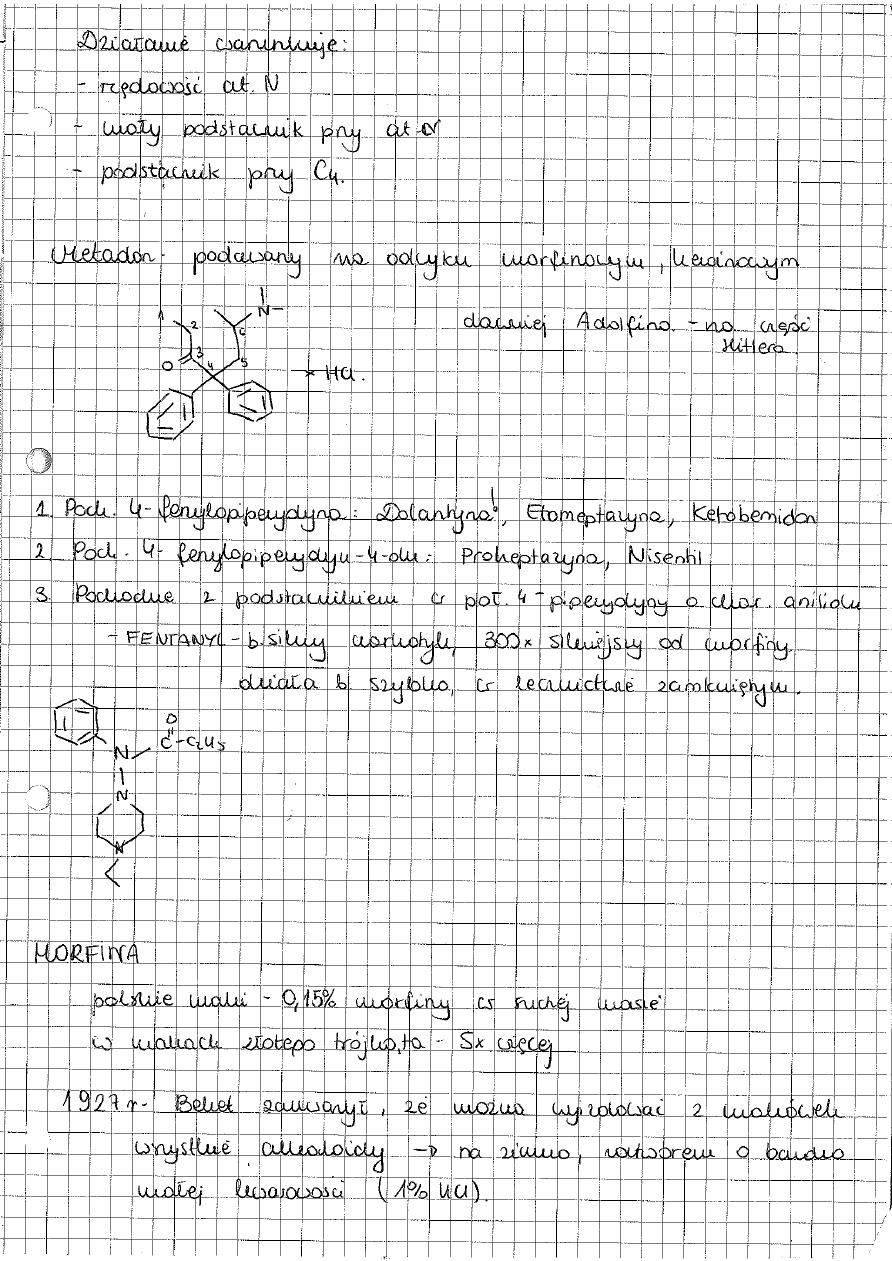 Działanie warunkuje:
- rzędowość at. N
- mały podstawnik przy at N
- podstawnik przy C4.
Metadon - podawany na odwyku morfinowym, heroinowym
dawniej Adolfina - na cześć
Hitlera.
1 2 3 4 5 6 N O * HCl.
1. Poch. 4-fenylopiperydyna: Dolantyna!, Etomeptazyna, Ketobemidon
2 Poch. 4-fenylopiperydyn-4-olu: Proheptazyna, Nisentil
3 Pochodne z podstawnikiem w poł. 4-piperydyny o char. anilidu
- FENTANYL - b. silny narkotyk, 300x silniejszy od morfiny.
działa b. szybko, w lecznictwie zamkniętym.
O
N C-C2H5
N
N
MORFINA
polskie maki - 0,15% morfiny w suchej masie
w makach złotego trójkąta - 5x więcej
1927r - zauważył, że można wyizolować z makówek
wszystkie alkaloidy → na zimno, roztworem o bardzo
małej kwasowości (1% HCl).